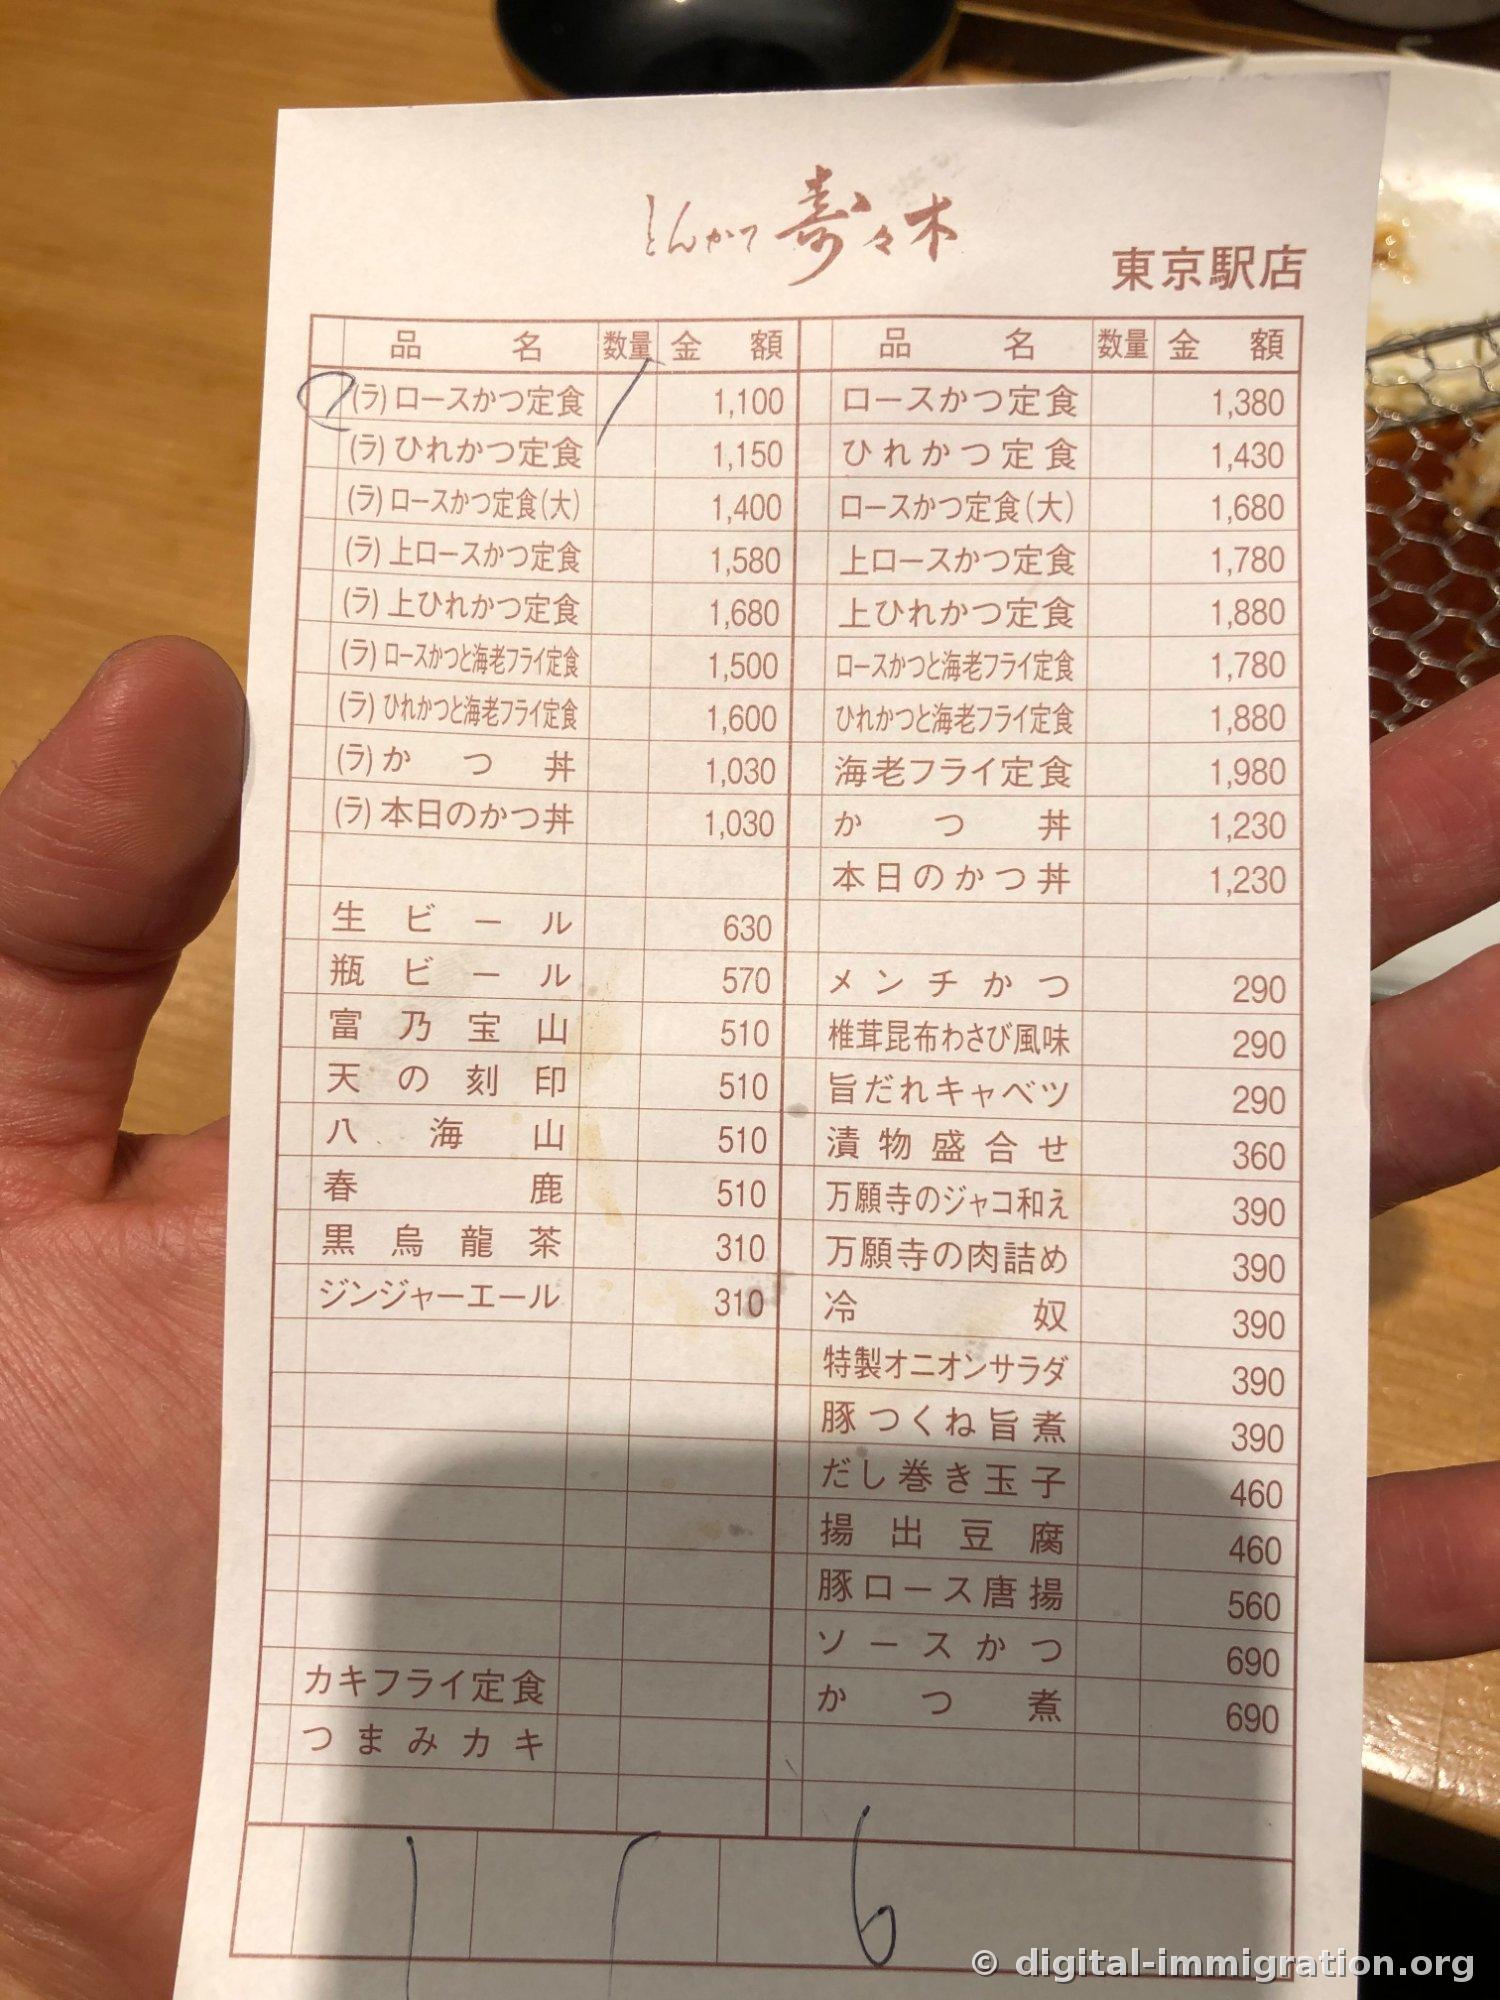 とんかつ 寿々木
東京駅店
品名 数量 金額 品名 数量 金額
(ラ)ロースかつ定食 1,100 ロースかつ定食 1,380
(ラ)ひれかつ定食 1,150 ひれかつ定食 1,430
(ラ)ロースかつ定食(大) 1,400 ロースかつ定食(大) 1,680
(ラ)上ロースかつ定食 1,580 上ロースかつ定食 1,780
(ラ)上ひれかつ定食 1,680 上ひれかつ定食 1,880
(ラ)ロースかつと海老フライ定食 1,500 ロースかつと海老フライ定食 1,780
(ラ)ひれかつと海老フライ定食 1,600 ひれかつと海老フライ定食 1,880
(ラ)かつ丼 1,030 海老フライ定食 1,980
(ラ)本日のかつ丼 1,030 かつ丼 1,230
本日のかつ丼 1,230
生ビール 630
瓶ビール 570 メンチかつ 290
富乃宝山 510 椎茸昆布わさび風味 290
天の刻印 510 旨だれキャベツ 290
八海山 510 漬物盛合せ 360
春鹿 510 万願寺のジャコ和え 390
黒烏龍茶 310 万願寺の肉詰め 390
ジンジャーエール 310 冷奴 390
特製オニオンサラダ 390
豚つくね旨煮 390
だし巻き玉子 460
揚出豆腐 460
豚ロース唐揚 560
ソースかつ 690
カキフライ定食 かつ煮 690
つまみカキ
1 1 6
© digital-immigration.org